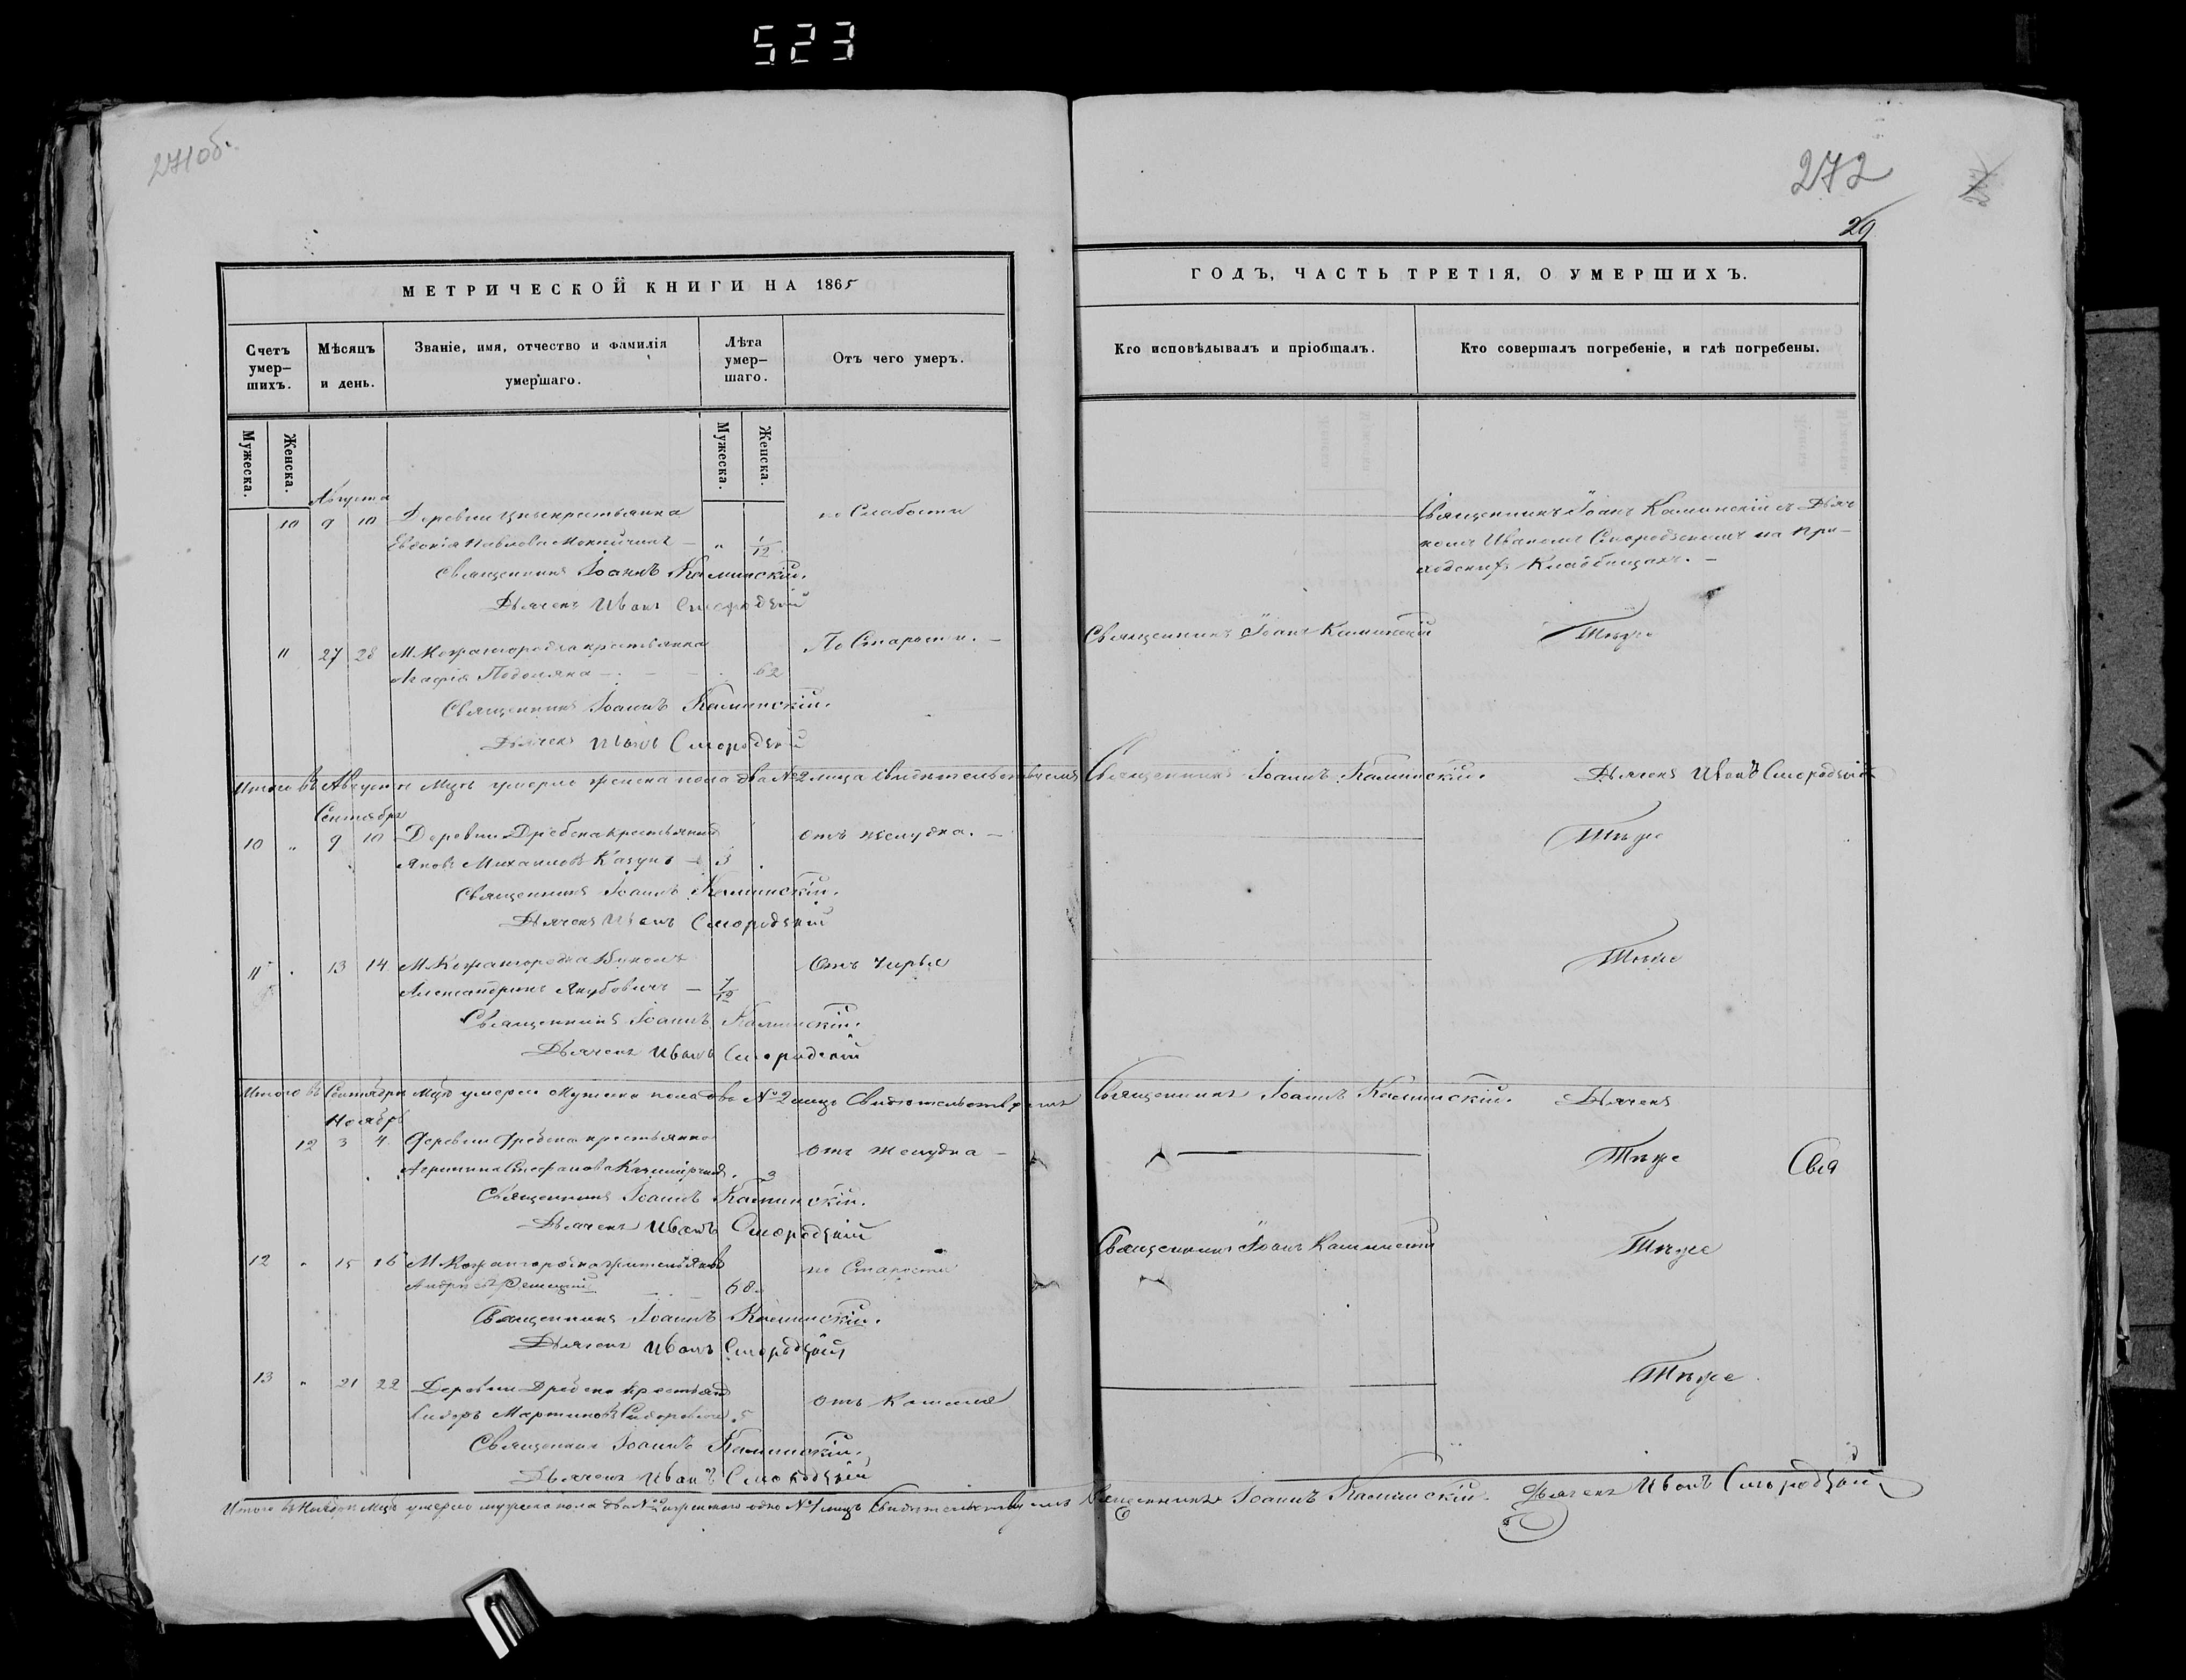 523
271об.
272
29
МЕТРИЧЕСКОЙ КНИГИ НА 1865
ГОДЪ, ЧАСТЬ ТРЕТІЯ, О УМЕРШИХЪ.
Счетъ умер-шихъ.
Мѣсяцъ и день.
Званіе, имя, отчество и фамилія умершаго.
Лѣта умер-шаго.
Отъ чего умеръ.
Кто исповѣдывалъ и пріобщалъ.
Кто совершалъ погребеніе, и гдѣ погребены.
Мужеска.
Женска.
Мужеска.
Женска.
Августа
10 9 10 Деревни крестьянка по Слабости
Евдокія Павлова — " 1/12
Священникъ Іоаннъ Каминскій съ Дьяч
комъ Иваномъ Смородскимъ на При-
ходскихъ Кладбищахъ. —
Священникъ Іоаннъ Каминскій.
Дьячекъ Иванъ Смородскій
11 27 28 М. Кожангородка крестьянка По Старости. — Священникъ Іоаннъ Каминскій Тѣже
Агафія 62
Священникъ Іоаннъ Каминскій.
Дьячекъ Иванъ Смородскій
Итого въ Августѣ Мцѣ умерло женска пола два № 2 лица Свидѣтельствуемъ Священникъ Іоаннъ Каминскій. Дьячекъ Иванъ Смородскій
Сентября
10 " 9 10 Деревни Дребска крестьянинъ отъ желудка. — Тѣже
Яковъ Михаиловъ Казунъ — 3
Священникъ Іоаннъ Каминскій.
Дьячекъ Иванъ Смородскій
11 13 14 М. Кожангородка Тѣже
Александринъ Якубовичъ — 7/12
Священникъ Іоаннъ Каминскій.
Дьячекъ Иванъ Смородскій
Итого въ Сентябрѣ Мцѣ умерли Мужеска пола два № 2 лицъ Свидѣтельствуемъ Священникъ Іоаннъ Каминскій. Дьячекъ
Ноябрь
12 3 4 Деревни Дребска крестьянка отъ желудка — Тѣже Свя
Стефанова 3
Священникъ Іоаннъ Каминскій.
Дьячекъ Иванъ Смородскій
12 " 15 16 М. Кожангородка по Старости Священникъ Іоаннъ Каминскій Тѣже
68
Священникъ Іоаннъ Каминскій.
Дьячекъ Иванъ Смородскій
13 " 21 22 Деревни Дребска отъ Кашля Тѣже
Сидоръ Мартиновъ 5
Священникъ Іоаннъ Каминскій.
Дьячекъ Иванъ Смородскій
Итого въ Ноябрѣ Мцѣ умерло мужеска пола два № 2 женскаго одно № 1 лицъ Свидѣтельствуемъ Священникъ Іоаннъ Каминскій. Дьячекъ Иванъ Смородскій